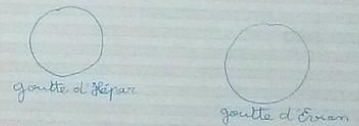 goutte d'Hépar
goutte d'Evian